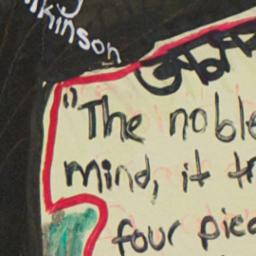 lkinson
"The noble
mind, it tr
four piec